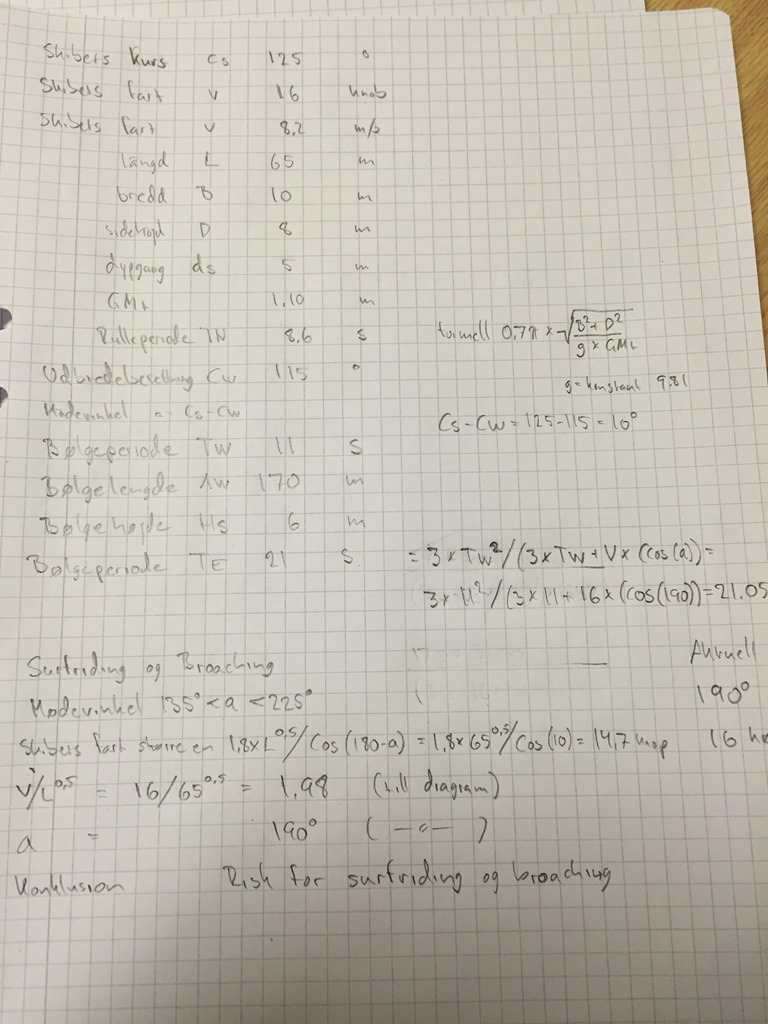 Skibets Kurs Cs 125 °
Skibets fart v 16 knob
Skibets fart v 8,2 m/s
längd L 65 m
bredd B 10 m
sidehøjd D 8 m
dypgang ds 5 m
GMt 1,10 m
Rulleperiode TN 8,6 s formell 0,7π × √B²+D² / g × GMt
g = konstant 9.81
Udbredelsesretning Cw 115 °
Mødevinkel a = Cs-Cw Cs-Cw = 125-115 = 10°
Bølgeperiode TW 11 s
Bølgelengde λw 170 m
Bølgehøjde Hs 6 m
Bølgeperiode TE 21 s = 3 × Tw²/(3 × Tw + V × (cos(a)) =
3 × 11²/(3 × 11 + 16 × (cos(190)) = 21.05
Surfriding og Broaching Aktuell
Mødevinkel 135° < a < 225° 190°
Skibets fart større en 1,8 × L^0,5/Cos(180-a) = 1,8 × 65^0,5/Cos(10) = 14,7 knop 16
V/L^0,5 = 16/65^0,5 = 1,98 (till diagram)
a = 190° ( —"— )
Konklusion Risk for surfriding og broaching